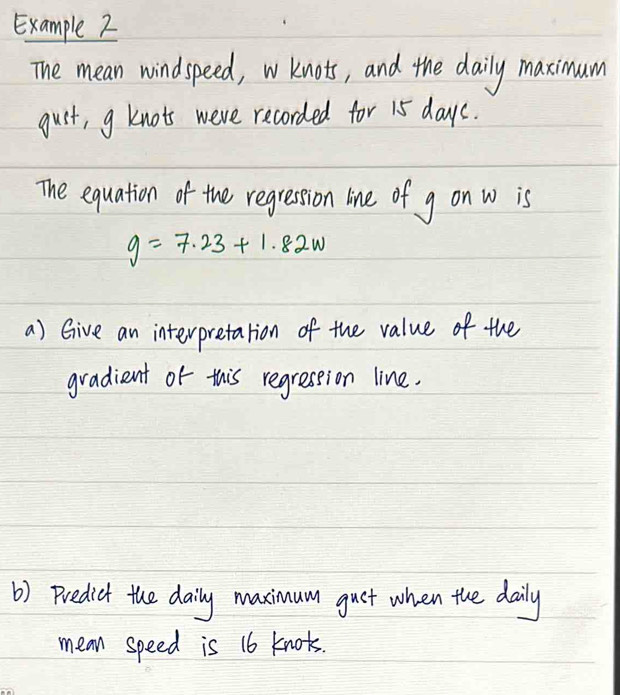 Example 2
The mean windspeed, w knots, and the daily maximum
gust, g knots were recorded for 15 days.
The equation of the regression line of g on w is
g = 7.23 + 1.82w
a) Give an interpretation of the value of the
gradient of this regression line.
b) Predict the daily maximum gust when the daily
mean speed is 16 knots.